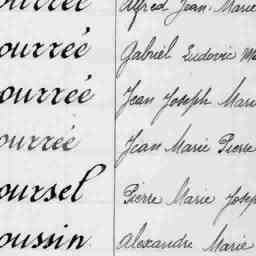 ourrée Alfred Jean Marie
ourrée Gabriel Ludovic Ma
ourrée Jean Joseph Mari
ourrée Jean Marie Pierre
oursel Pierre Marie Josep
oussin Alexandre Marie